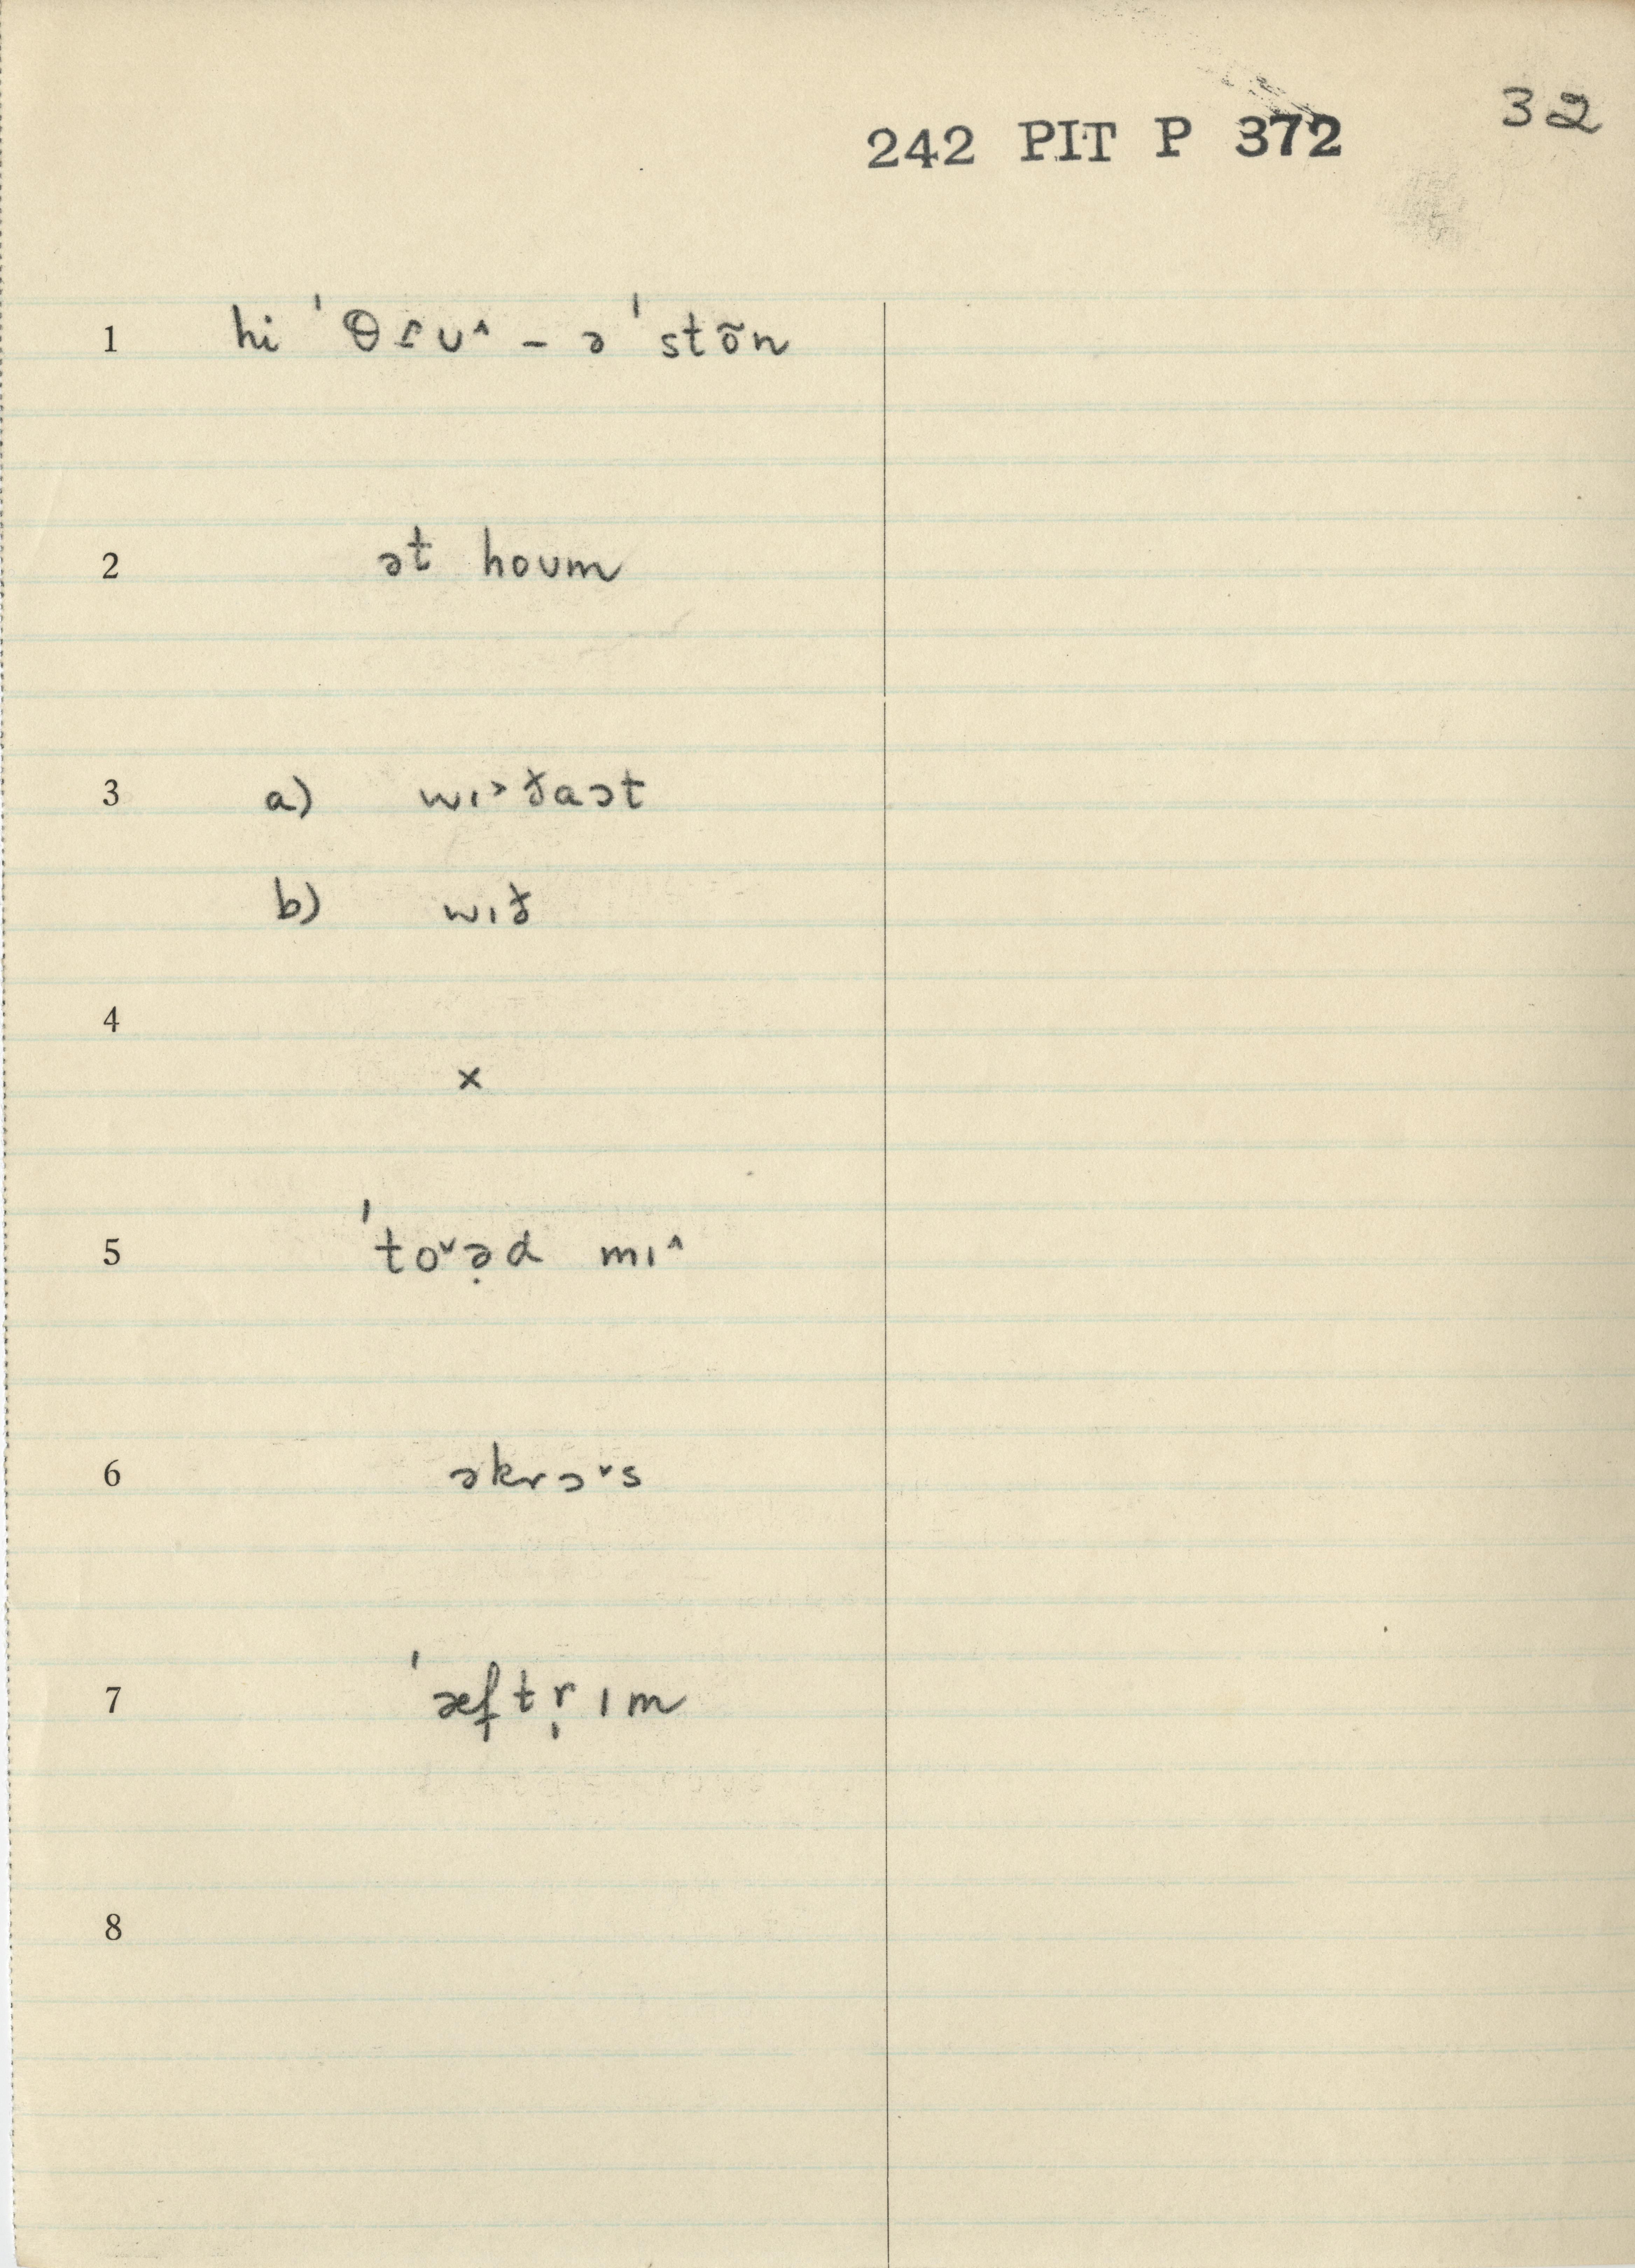 32
242 PIT P 372
1 hi ˈθɾʊ˄ – ə ˈstõn
2 ət hoʊm
3 a) wɪ˃ðaɔt
b) wɪð
4
x
5 ˈto˅ə̣d mɪ˄
6 əkrɔ˅s
7 ˈæftr̩ ɪm
8